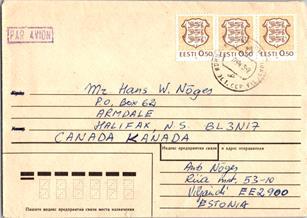 PAR AVION
EESTI 0.50
EESTI 0.50
EESTI 0.50
Mr Hans W. Nõges
P.O. Box 62
ARMDALE
HALIFAX, N.S. BL3N17
CANADA KANADA
Куда
Кому
Индекс предприятия связи и адрес отправителя
Ants Nõges
53-10
Viljandi EE2900
ESTONIA
Пишите индекс предприятия связи места назначения